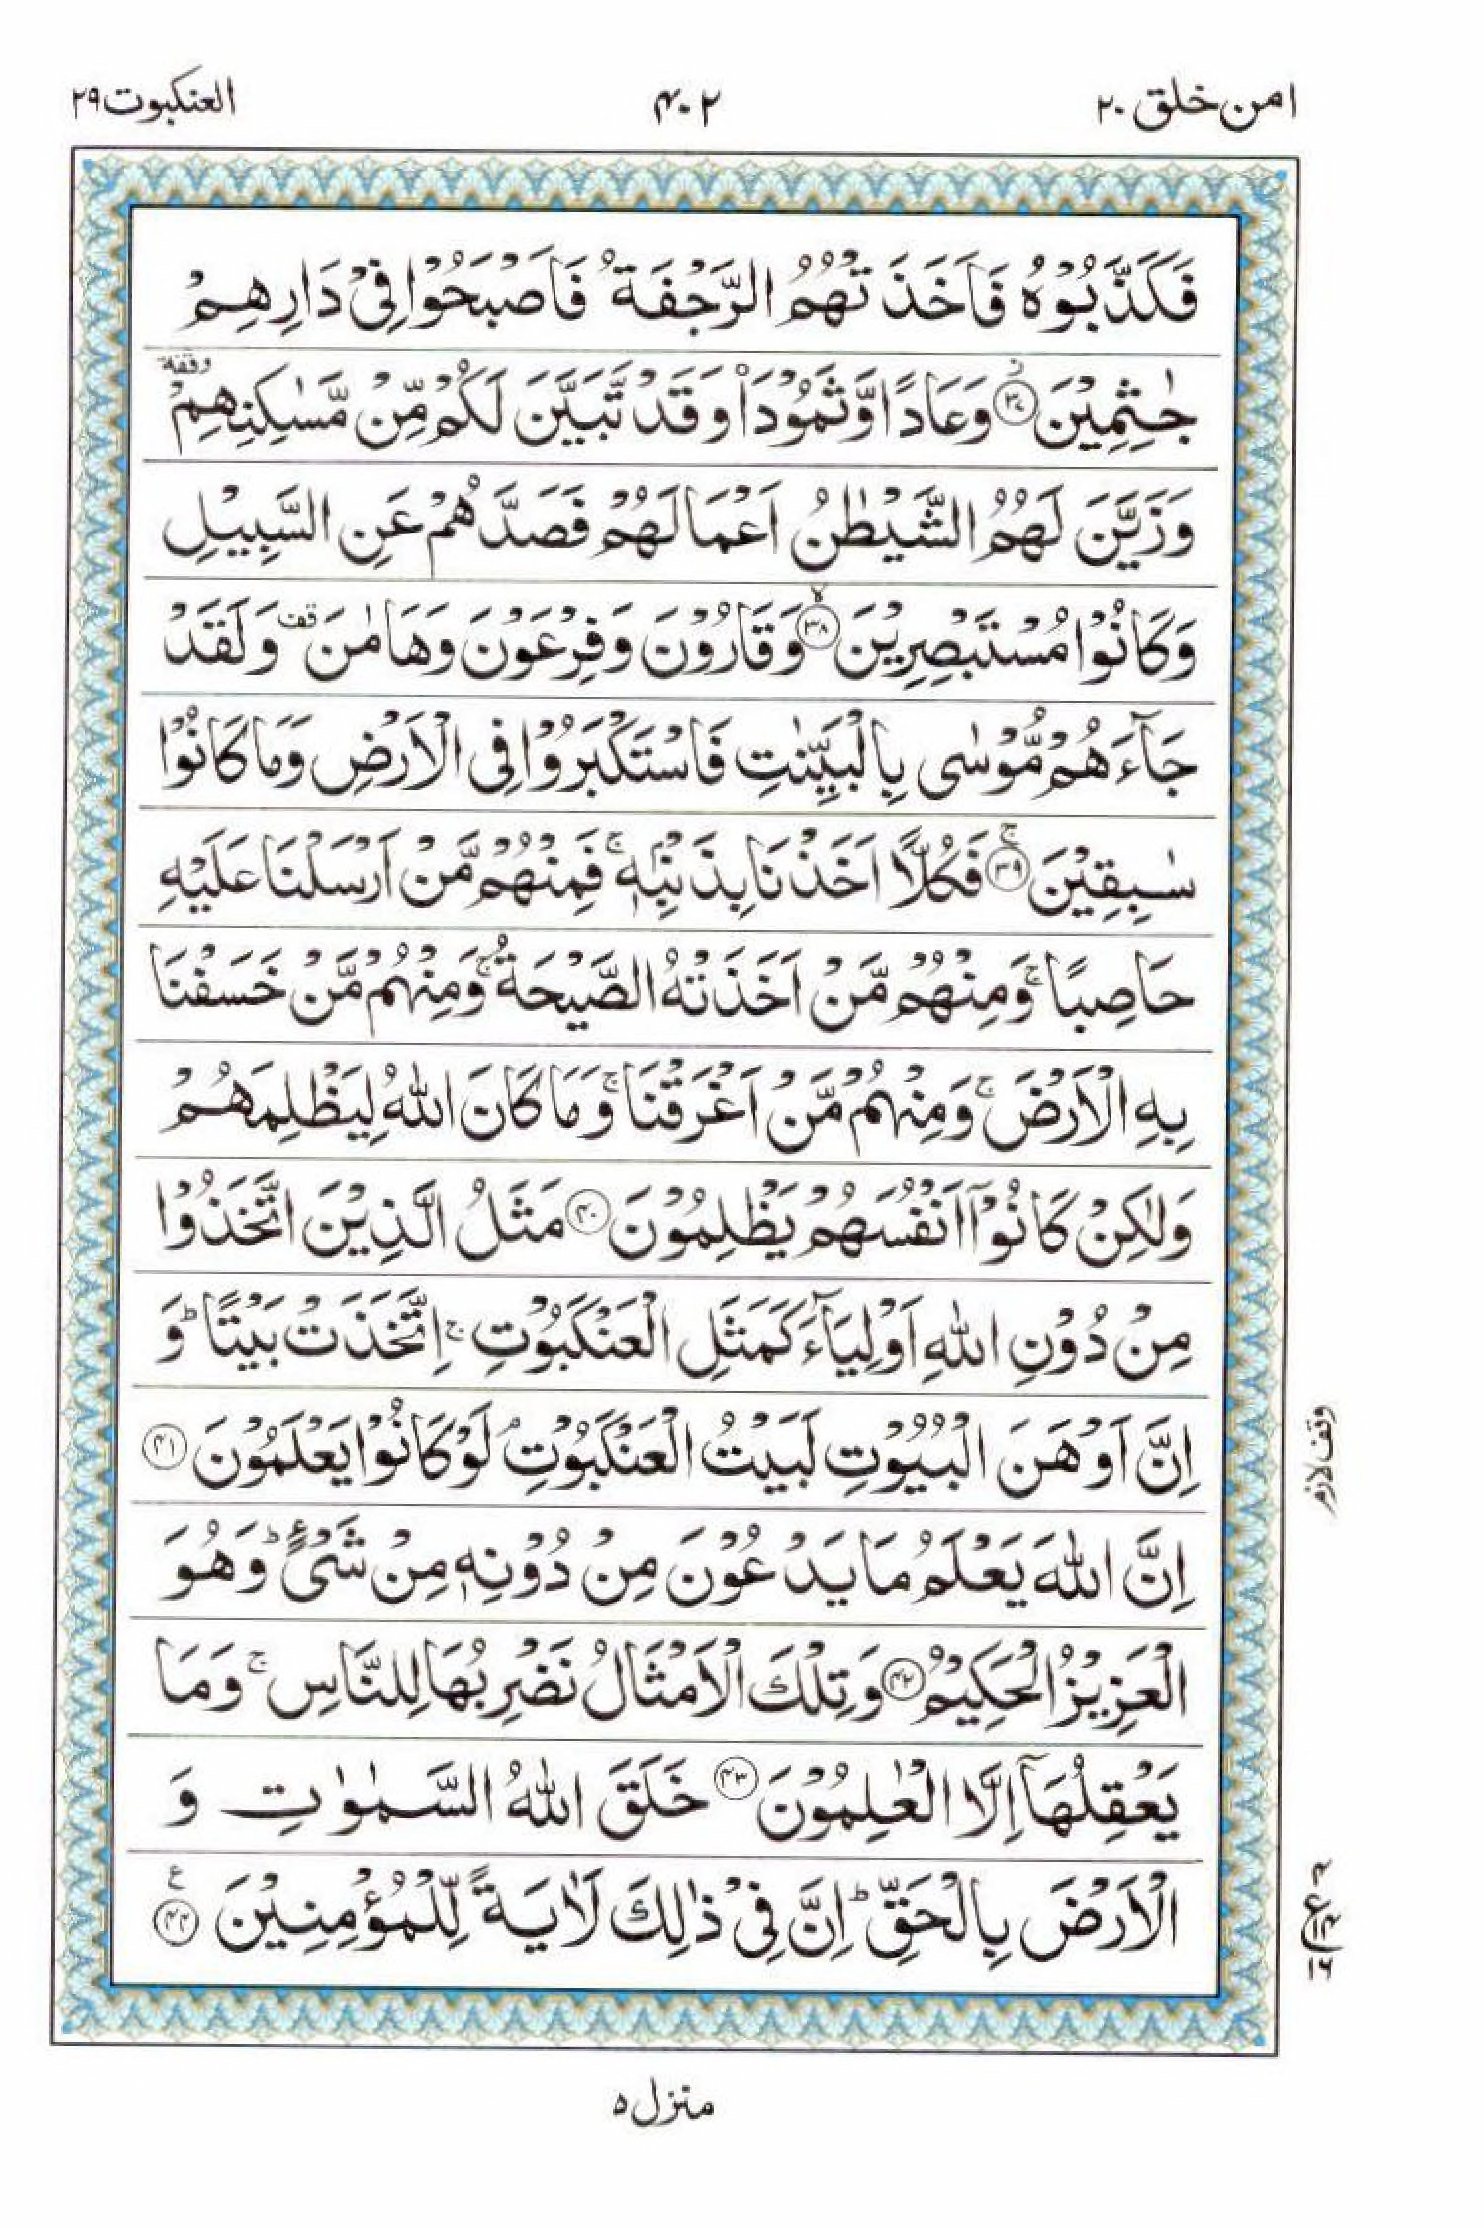 امن خلق ٢٠
٤٠٢
العنكبوت ٢٩
فَكَذَّبُوْهُ فَاَخَذَتْهُمُ الرَّجْفَةُ فَاَصْبَحُوْا فِيْ دَارِهِمْ
جٰثِمِيْنَ ﴿٣٧﴾ۙ وَعَادًا وَّثَمُوْدَا۟ وَقَدْ تَّبَيَّنَ لَكُمْ مِّنْ مَّسٰكِنِهِمْ وقفة
وَزَيَّنَ لَهُمُ الشَّيْطٰنُ اَعْمَالَهُمْ فَصَدَّهُمْ عَنِ السَّبِيْلِ
وَكَانُوْا مُسْتَبْصِرِيْنَ ﴿٣٨﴾ۙ وَقَارُوْنَ وَفِرْعَوْنَ وَهَامٰنَ قف وَلَقَدْ
جَآءَهُمْ مُّوْسٰى بِالْبَيِّنٰتِ فَاسْتَكْبَرُوْا فِى الْاَرْضِ وَمَا كَانُوْا
سٰبِقِيْنَ ﴿٣٩﴾ۚ فَكُلًّا اَخَذْنَا بِذَنْۢبِهٖۚ فَمِنْهُمْ مَّنْ اَرْسَلْنَا عَلَيْهِ
حَاصِبًاۚ وَمِنْهُمْ مَّنْ اَخَذَتْهُ الصَّيْحَةُۚ وَمِنْهُمْ مَّنْ خَسَفْنَا
بِهِ الْاَرْضَۚ وَمِنْهُمْ مَّنْ اَغْرَقْنَاۚ وَمَا كَانَ اللّٰهُ لِيَظْلِمَهُمْ
وَلٰكِنْ كَانُوْۤا اَنْفُسَهُمْ يَظْلِمُوْنَ ﴿٤٠﴾ مَثَلُ الَّذِيْنَ اتَّخَذُوْا
مِنْ دُوْنِ اللّٰهِ اَوْلِيَآءَ كَمَثَلِ الْعَنْكَبُوْتِۚ اِتَّخَذَتْ بَيْتًاؕ وَ
اِنَّ اَوْهَنَ الْبُيُوْتِ لَبَيْتُ الْعَنْكَبُوْتِۘ لَوْ كَانُوْا يَعْلَمُوْنَ ﴿٤١﴾
وقف لازم
اِنَّ اللّٰهَ يَعْلَمُ مَا يَدْعُوْنَ مِنْ دُوْنِهٖ مِنْ شَيْءٍؕ وَهُوَ
الْعَزِيْزُ الْحَكِيْمُ ﴿٤٢﴾ وَتِلْكَ الْاَمْثَالُ نَضْرِبُهَا لِلنَّاسِۚ وَمَا
يَعْقِلُهَاۤ اِلَّا الْعٰلِمُوْنَ ﴿٤٣﴾ خَلَقَ اللّٰهُ السَّمٰوٰتِ وَ
الْاَرْضَ بِالْحَقِّؕ اِنَّ فِيْ ذٰلِكَ لَاٰيَةً لِّلْمُؤْمِنِيْنَ ﴿٤٤﴾ ع
منزل ٥